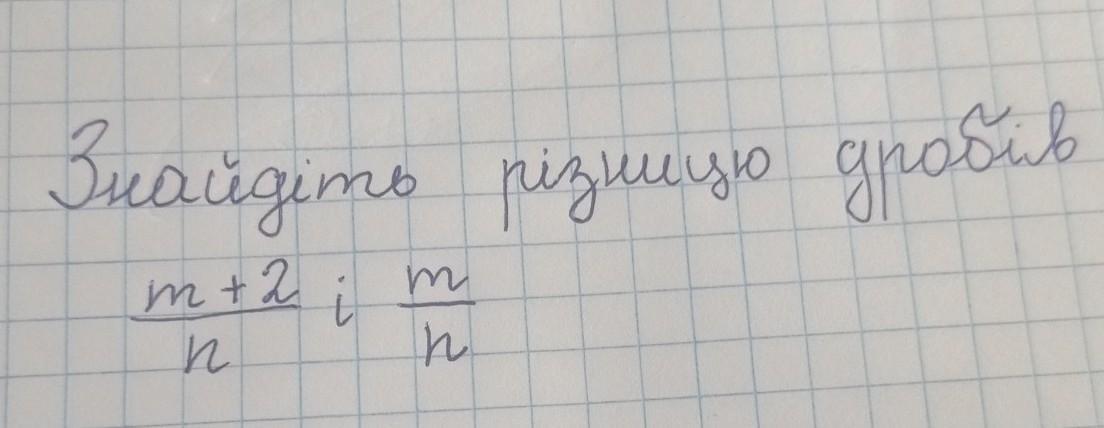 Знайдіть різницю дробів
\frac{m+2}{n} і \frac{m}{n}